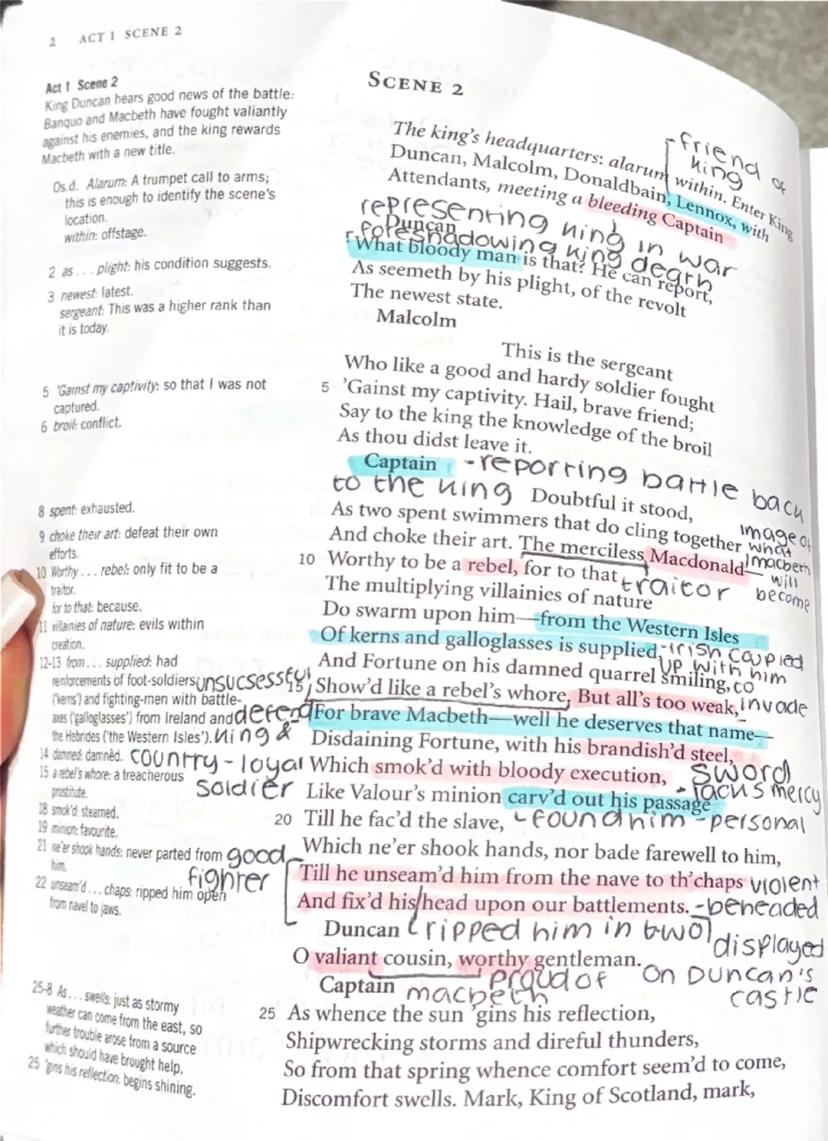 2 ACT 1 SCENE 2
Act 1 Scene 2
King Duncan hears good news of the battle:
Banquo and Macbeth have fought valiantly
against his enemies, and the king rewards
Macbeth with a new title.
0s.d. Alarum: A trumpet call to arms;
this is enough to identify the scene's
location.
within: offstage.
2 as . . . plight: his condition suggests.
3 newest: latest.
sergeant: This was a higher rank than
it is today.
5 'Gainst my captivity: so that I was not
captured.
6 broil: conflict.
8 spent: exhausted.
9 choke their art: defeat their own
efforts.
10 Worthy . . . rebel: only fit to be a
traitor.
for to that: because.
11 villainies of nature: evils within
creation.
12-13 from . . . supplied: had
reinforcements of foot-soldiers
('kerns') and fighting-men with battle-
axes ('galloglasses') from Ireland and
the Hebrides ('the Western Isles').
14 damned: damnèd.
15 a rebel's whore: a treacherous
prostitute.
18 smok'd: steamed.
19 minion: favourite.
21 ne'er shook hands: never parted from
him.
22 unseam'd . . . chaps: ripped him open
from navel to jaws.
25-8 As . . . swells: just as stormy
weather can come from the east, so
further trouble arose from a source
which should have brought help.
25 'gins his reflection: begins shining.
SCENE 2
The king's headquarters: alarum within. Enter King
Duncan, Malcolm, Donaldbain, Lennox, with
Attendants, meeting a bleeding Captain
-friend of
king
representing king in war
foreshadowing king death
Duncan
What bloody man is that? He can report,
As seemeth by his plight, of the revolt
The newest state.
Malcolm
This is the sergeant
Who like a good and hardy soldier fought
5 'Gainst my captivity. Hail, brave friend;
Say to the king the knowledge of the broil
As thou didst leave it.
Captain -reporting battle back
to the king Doubtful it stood,
As two spent swimmers that do cling together
And choke their art. The merciless Macdonald—
image of
what
macbeth
will
become
10 Worthy to be a rebel, for to that
traitor
The multiplying villainies of nature
Do swarm upon him—from the Western Isles
Of kerns and galloglasses is supplied,
-irish coupied
up with him
to
invade
And Fortune on his damned quarrel smiling,
15 Show'd like a rebel's whore. But all's too weak,
unsucsessful
For brave Macbeth—well he deserves that name—
defend
king &
country - loyal
soldier
Disdaining Fortune, with his brandish'd steel,
Which smok'd with bloody execution,
sword
- lacks mercy
Like Valour's minion carv'd out his passage
20 Till he fac'd the slave,
-found him - personal
Which ne'er shook hands, nor bade farewell to him,
good
fighter
Till he unseam'd him from the nave to th'chaps
violent
And fix'd his head upon our battlements.
-beheaded
Duncan
ripped him in two
displayed
on Duncan's
castle
O valiant cousin, worthy gentleman.
proud of
macbeth
Captain
25 As whence the sun 'gins his reflection,
Shipwrecking storms and direful thunders,
So from that spring whence comfort seem'd to come,
Discomfort swells. Mark, King of Scotland, mark,